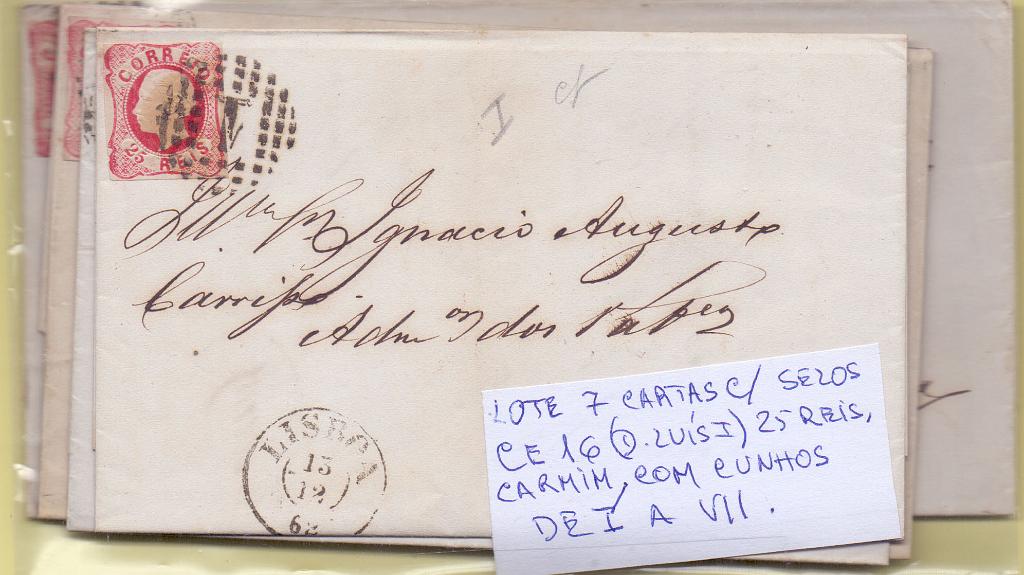 CORREIO
25 REIS
1
I
Illmo Sr Ignacio Augusto
Carrisso
Admor dos
LISBOA
13
12
62
LOTE 7 CARTAS C/ SELOS
CE 16 (D. LUÍS I) 25 REIS,
CARMIM, COM CUNHOS
DE I A VII.